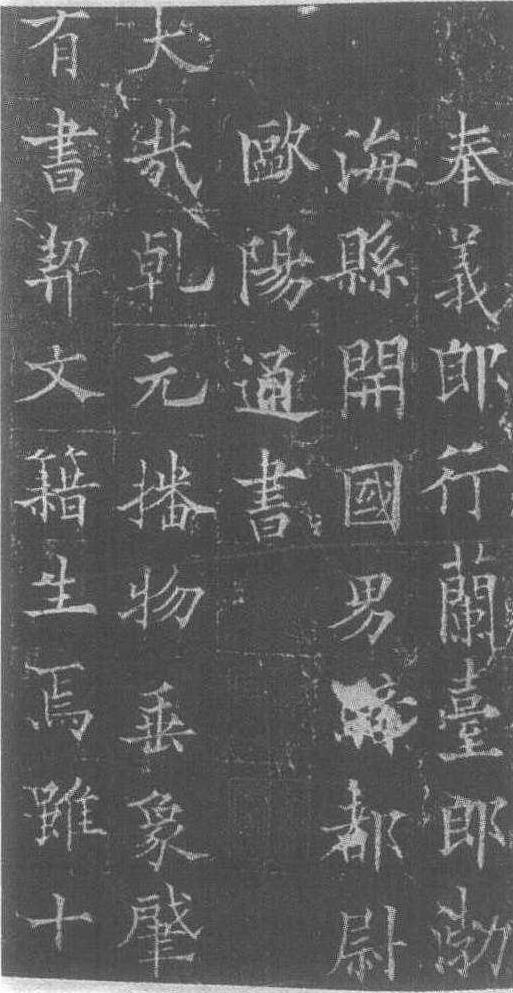 奉義郎行蘭臺郎渤
海縣開國男都尉
歐陽通書
大哉乹元播物垂象肈
有書契文籍生焉雖十